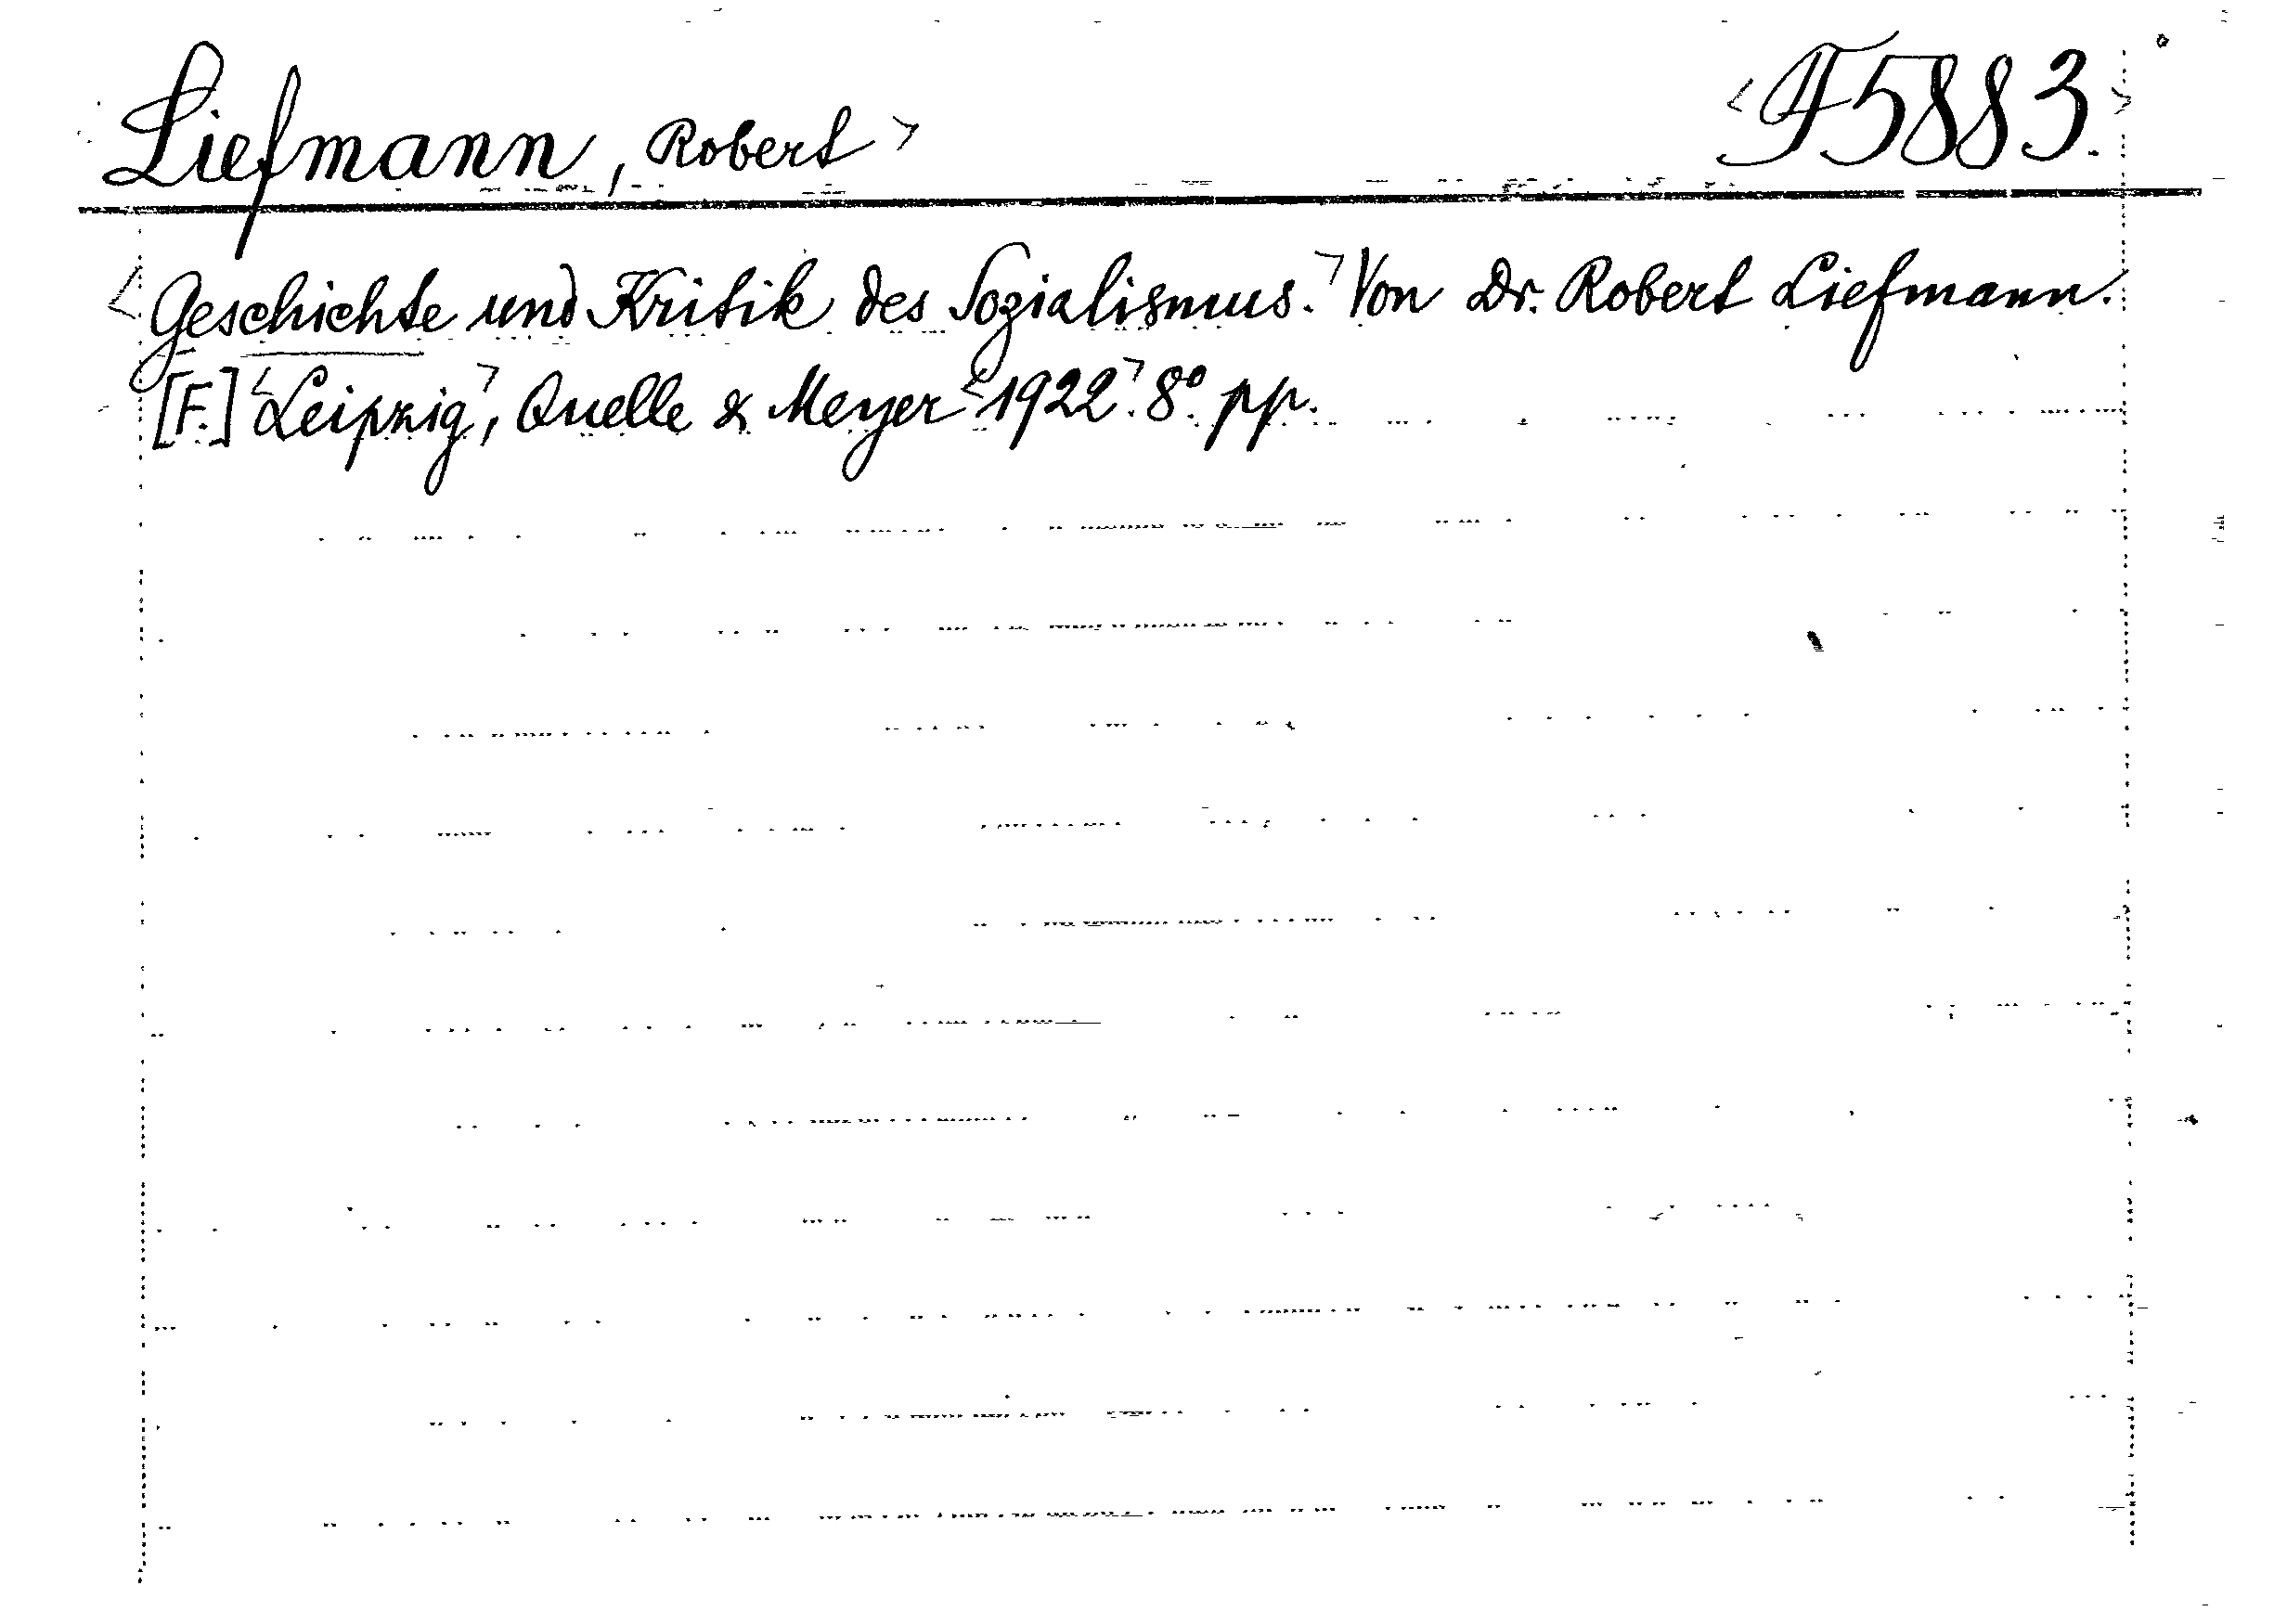 Liefmann, Robert F5883.
Geschichte und Kritik des Sozialismus. Von Dr. Robert Liefmann.
[F.] Leipzig, Quelle & Meyer 1922. 8° pp.